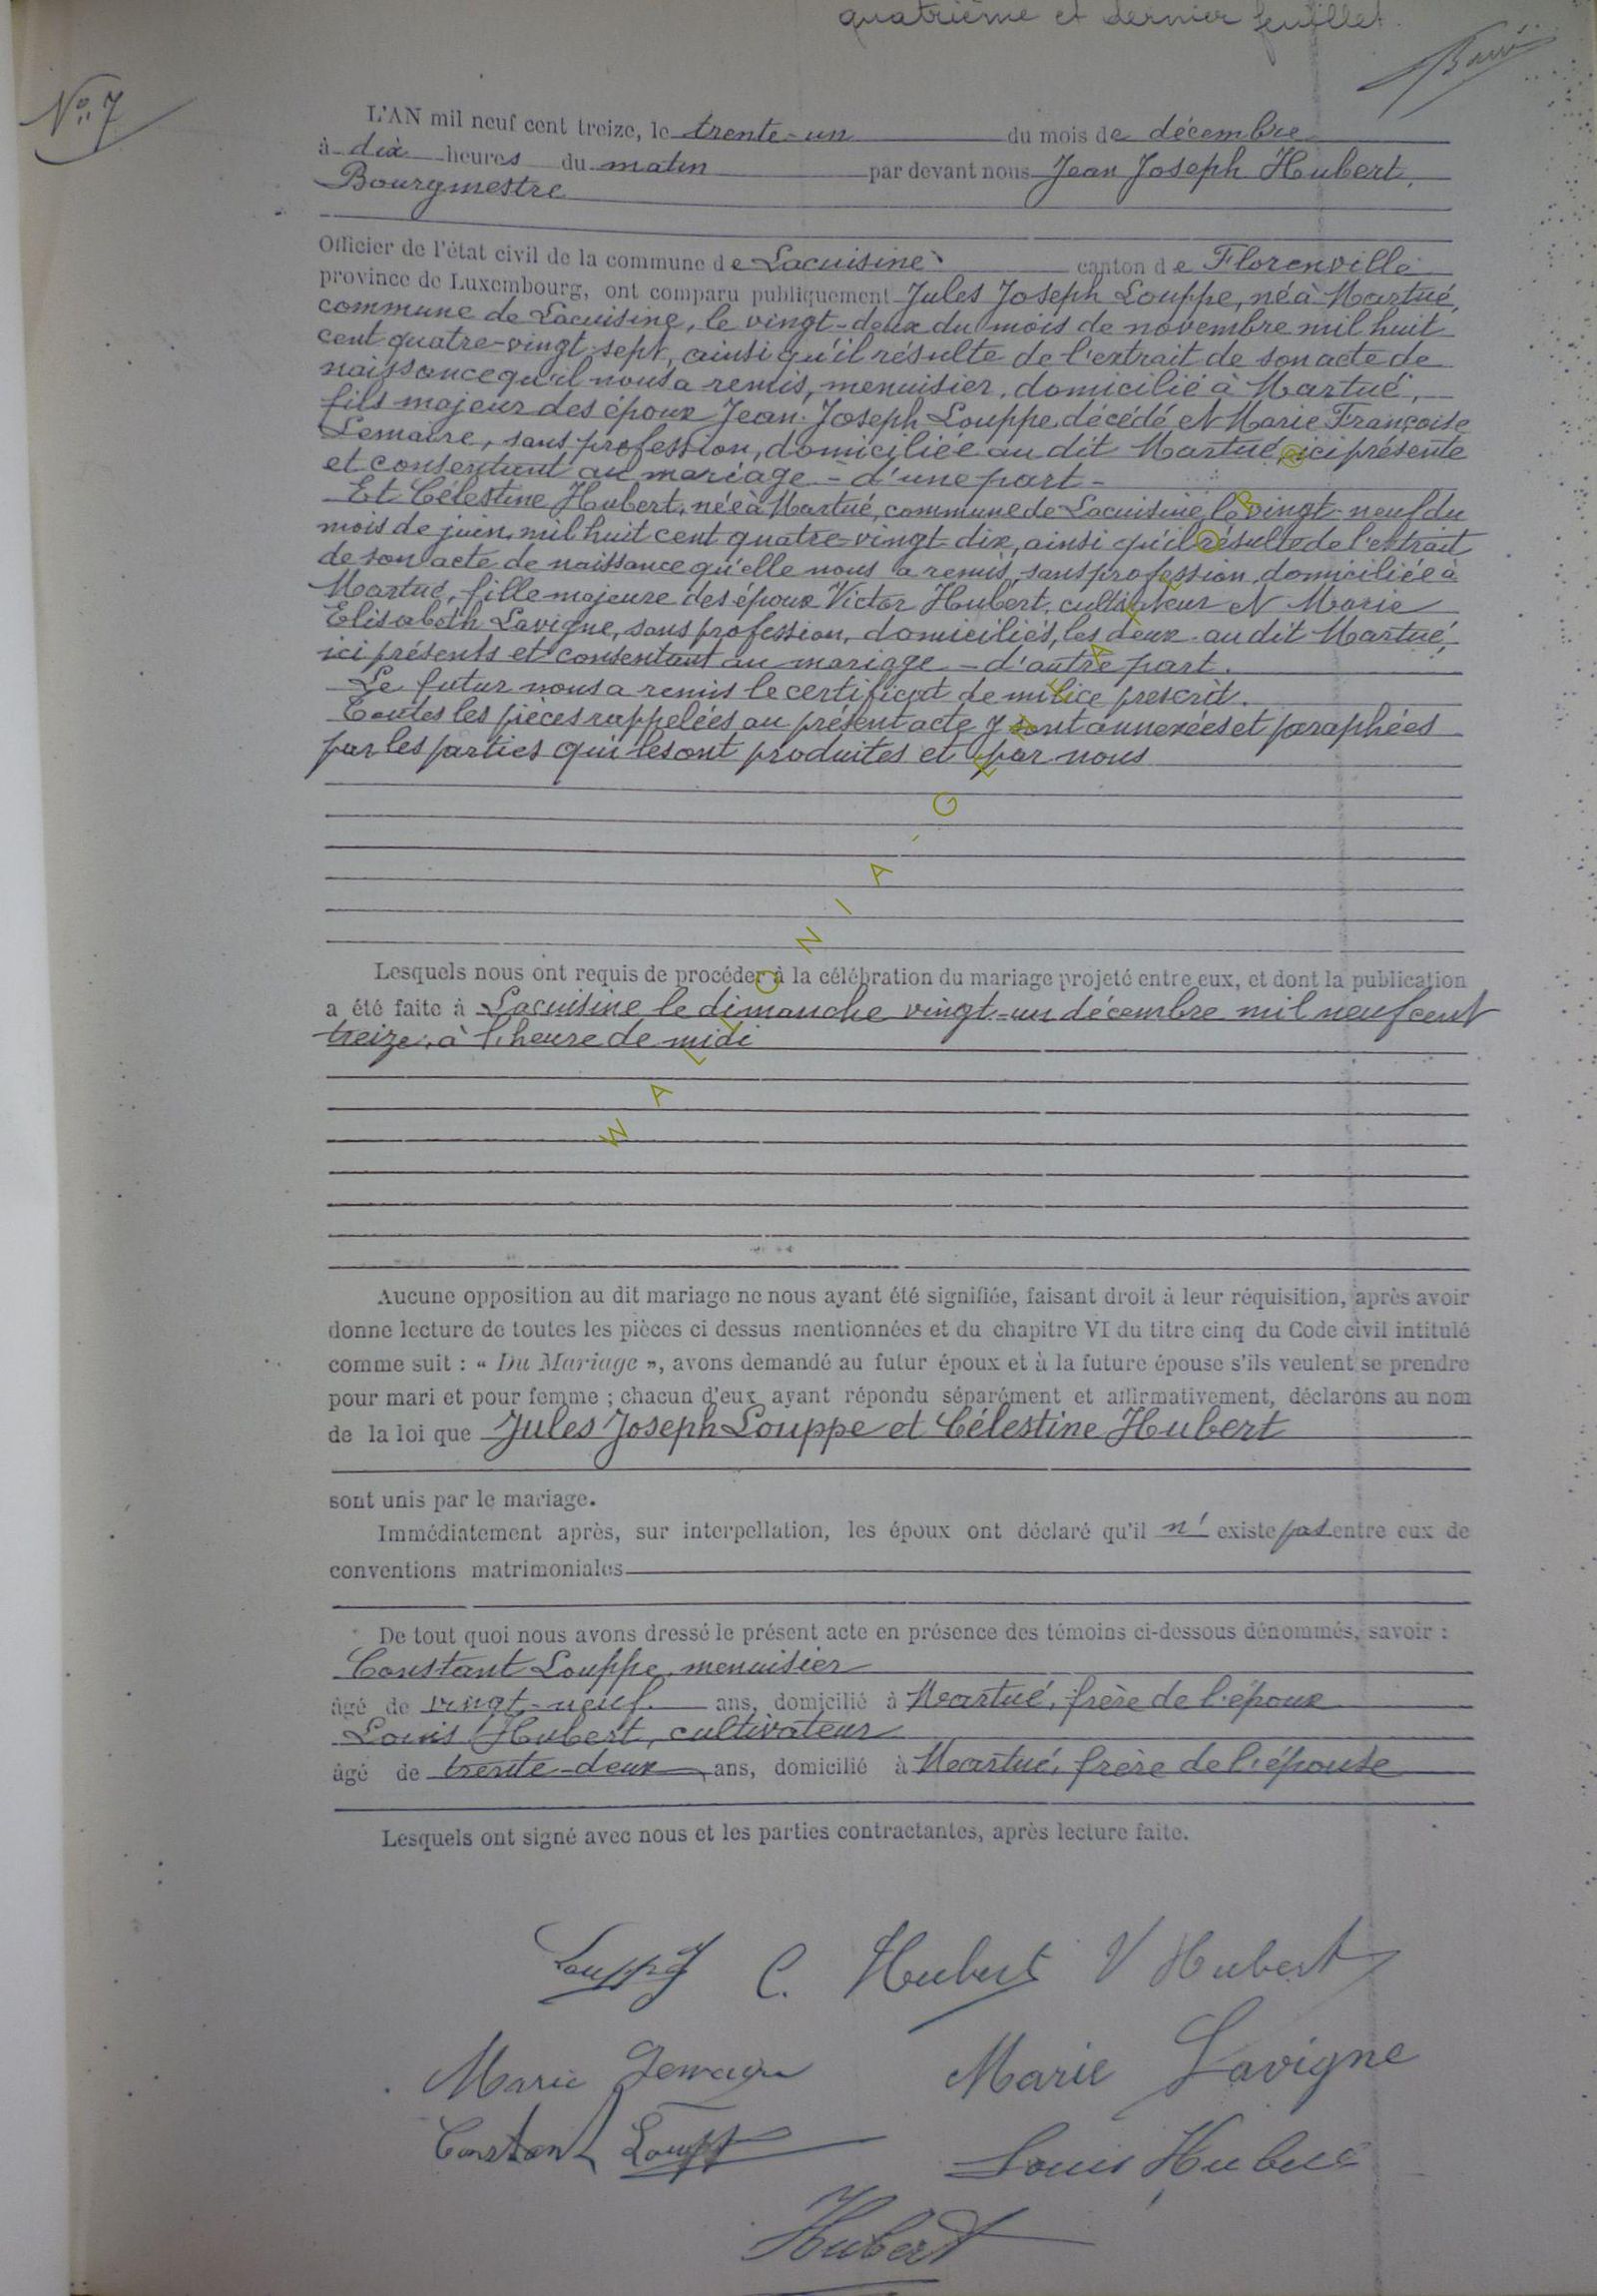 quatrième et dernier feuillet.
N° 7
L'AN mil neuf cent treize, le trente-un du mois de décembre
à dix heures du matin par devant nous Jean Joseph Hubert,
Bourgmestre
Officier de l'état civil de la commune de Lacuisine canton de Florenville
province de Luxembourg, ont comparu publiquement Jules Joseph Louppe, né à Martué,
commune de Lacuisine, le vingt-deux du mois de novembre mil huit
cent quatre-vingt-sept, ainsi qu'il résulte de l'extrait de son acte de
naissance qu'il nous a remis, menuisier, domicilié à Martué,
fils majeur des époux Jean-Joseph Louppe décédé et Marie Françoise
Lemaire, sans profession, domiciliée au dit Martué, ici présente
et consentant au mariage - d'une part -
Et Célestine Hubert, née à Martué, commune de Lacuisine, le vingt-neuf du
mois de juin mil huit cent quatre-vingt-dix, ainsi qu'il résulte de l'extrait
de son acte de naissance qu'elle nous a remis, sans profession, domiciliée à
Martué, fille majeure des époux Victor Hubert, cultivateur et Marie
Elisabeth Lavigne, sans profession, domiciliés, les deux au dit Martué,
ici présents et consentant au mariage - d'autre part.
Le futur nous a remis le certificat de milice prescrit.
Toutes les pièces rappelées au présent acte y sont annexées et paraphées
par les parties qui les ont produites et par nous
Lesquels nous ont requis de procéder à la célébration du mariage projeté entre eux, et dont la publication
a été faite à Lacuisine le dimanche vingt-un décembre mil neuf cent
treize, à l'heure de midi
Aucune opposition au dit mariage ne nous ayant été signifiée, faisant droit à leur réquisition, après avoir
donne lecture de toutes les pièces ci dessus mentionnées et du chapitre VI du titre cinq du Code civil intitulé
comme suit : « Du Mariage », avons demandé au futur époux et à la future épouse s'ils veulent se prendre
pour mari et pour femme ; chacun d'eux ayant répondu séparément et affirmativement, déclarons au nom
de la loi que Jules Joseph Louppe et Célestine Hubert
sont unis par le mariage.
Immédiatement après, sur interpellation, les époux ont déclaré qu'il n' existe pas entre eux de
conventions matrimoniales
De tout quoi nous avons dressé le présent acte en présence des témoins ci-dessous dénommés, savoir :
Constant Louppe, menuisier
âgé de vingt-neuf ans, domicilié à Martué, frère de l'époux
Louis Hubert, cultivateur
âgé de trente-deux ans, domicilié à Martué, frère de l'épouse
Lesquels ont signé avec nous et les parties contractantes, après lecture faite.
C. Hubert V Hubert
Marie Marie Lavigne
Constant Loupp Louis Hubert
Hubert
WALLONIA-GENEALOGO